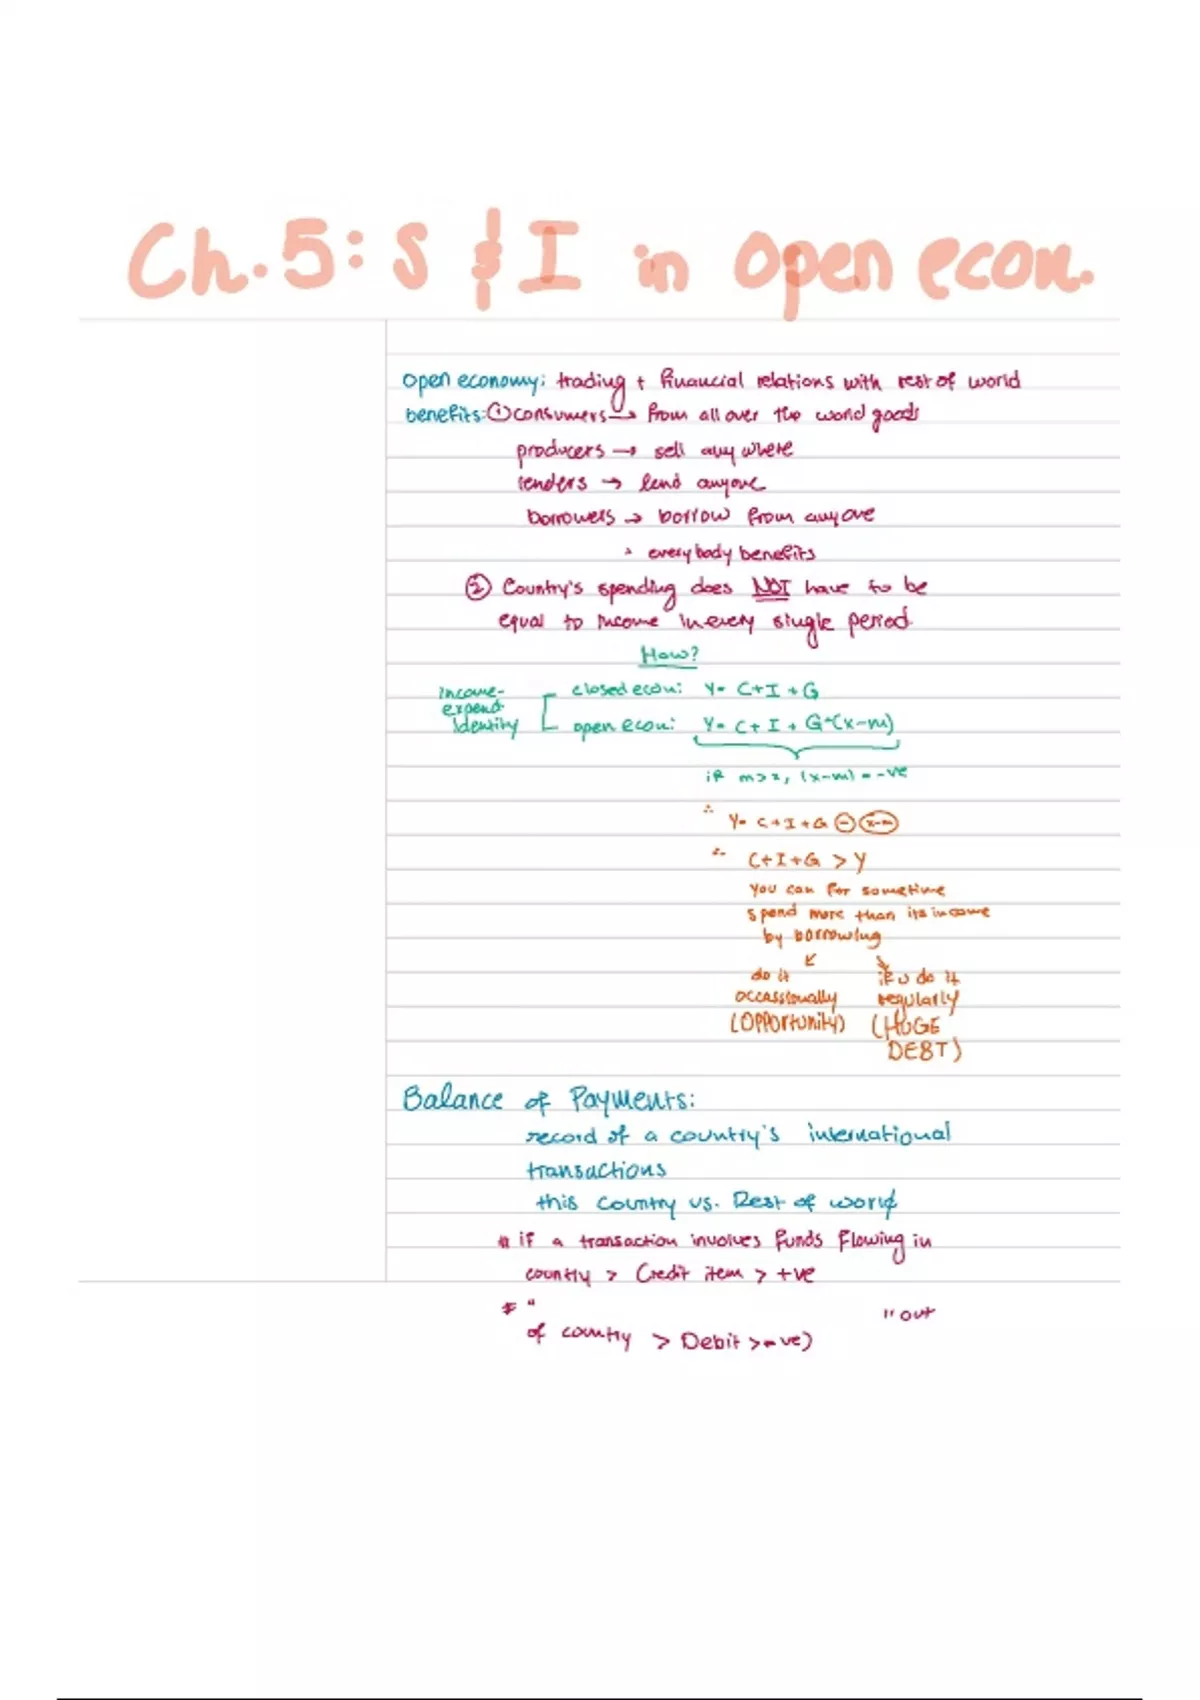 Ch.5: S & I in open econ.
open economy: trading + financial relations with rest of world
benefits: ① consumers → from all over the world goods
producers → sell anywhere
lenders → lend anyone
borrowers → borrow from anyone
∴ everybody benefits
② Country's spending does NOT have to be
equal to income in every single period.
How?
income-
expend
identity
closed econ: Y = C + I + G
open econ: Y = C + I + G + (x-m)
if m > x, (x-m) = -ve
∴ Y = C + I + G - (x-m)
∴ C + I + G > Y
you can for sometime
spend more than its income
by borrowing
do it
occassionally
(OPPOrtunity)
if u do it
regularly
(HUGE
DEBT)
Balance of Payments:
record of a country's international
transactions
this country vs. Rest of world
* if a transaction involves funds flowing in
country > Credit item > +ve
* " " out
of country > Debit > -ve)